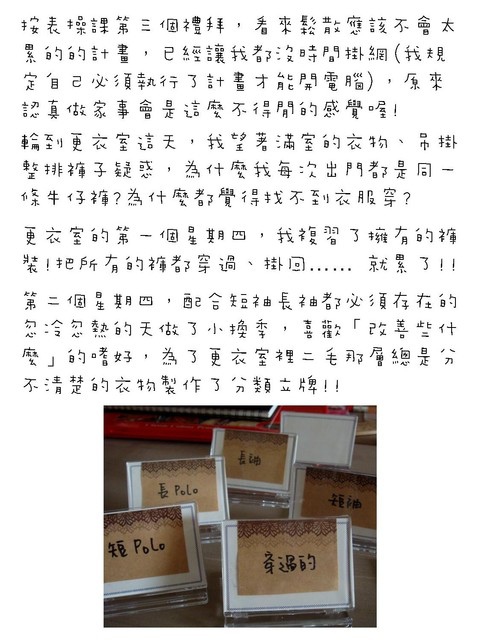 按表操課第三個禮拜，看來鬆散應該不會太
累的的計畫，已經讓我都沒時間掛網(我規
定自己必須執行了計畫才能開電腦)，原來
認真做家事會是這麼不得閒的感覺喔!
輪到更衣室這天，我望著滿室的衣物、吊掛
整排褲子疑惑，為什麼我每次出門都是同一
條牛仔褲?為什麼都覺得找不到衣服穿?
更衣室的第一個星期四，我複習了擁有的褲
裝!把所有的褲都穿過、掛回…… 就累了!!
第二個星期四，配合短袖長袖都必須存在的
忽冷忽熱的天做了小換季，喜歡「改善些什
麼」的嗜好，為了更衣室裡二毛那層總是分
不清楚的衣物製作了分類立牌!!
長袖
長 POLO
短袖
短 POLO
穿過的